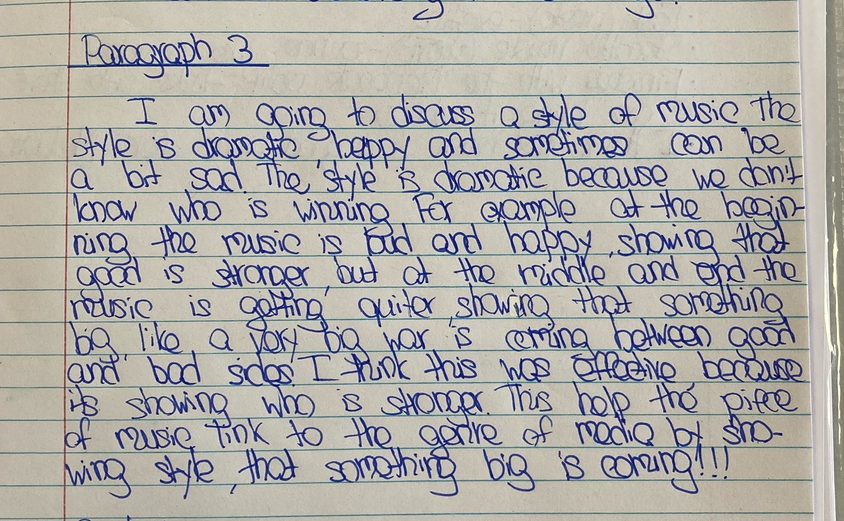 Paragraph 3
I am going to discuss a style of music The
style is dramatic, happy and sometimes can be
a bit sad. The style is dramatic because we don't
know who is winning For example at the begin-
ning the music is and happy, showing that
good is stronger, but at the middle and end the
music is getting quiter, showing that something
big, like a very big war is coming between good
and bad sides. I think this was effective because
it's showing who is stronger. This help the piece
of music link to the genre of media by sho-
wing style, that something big is coming!!!